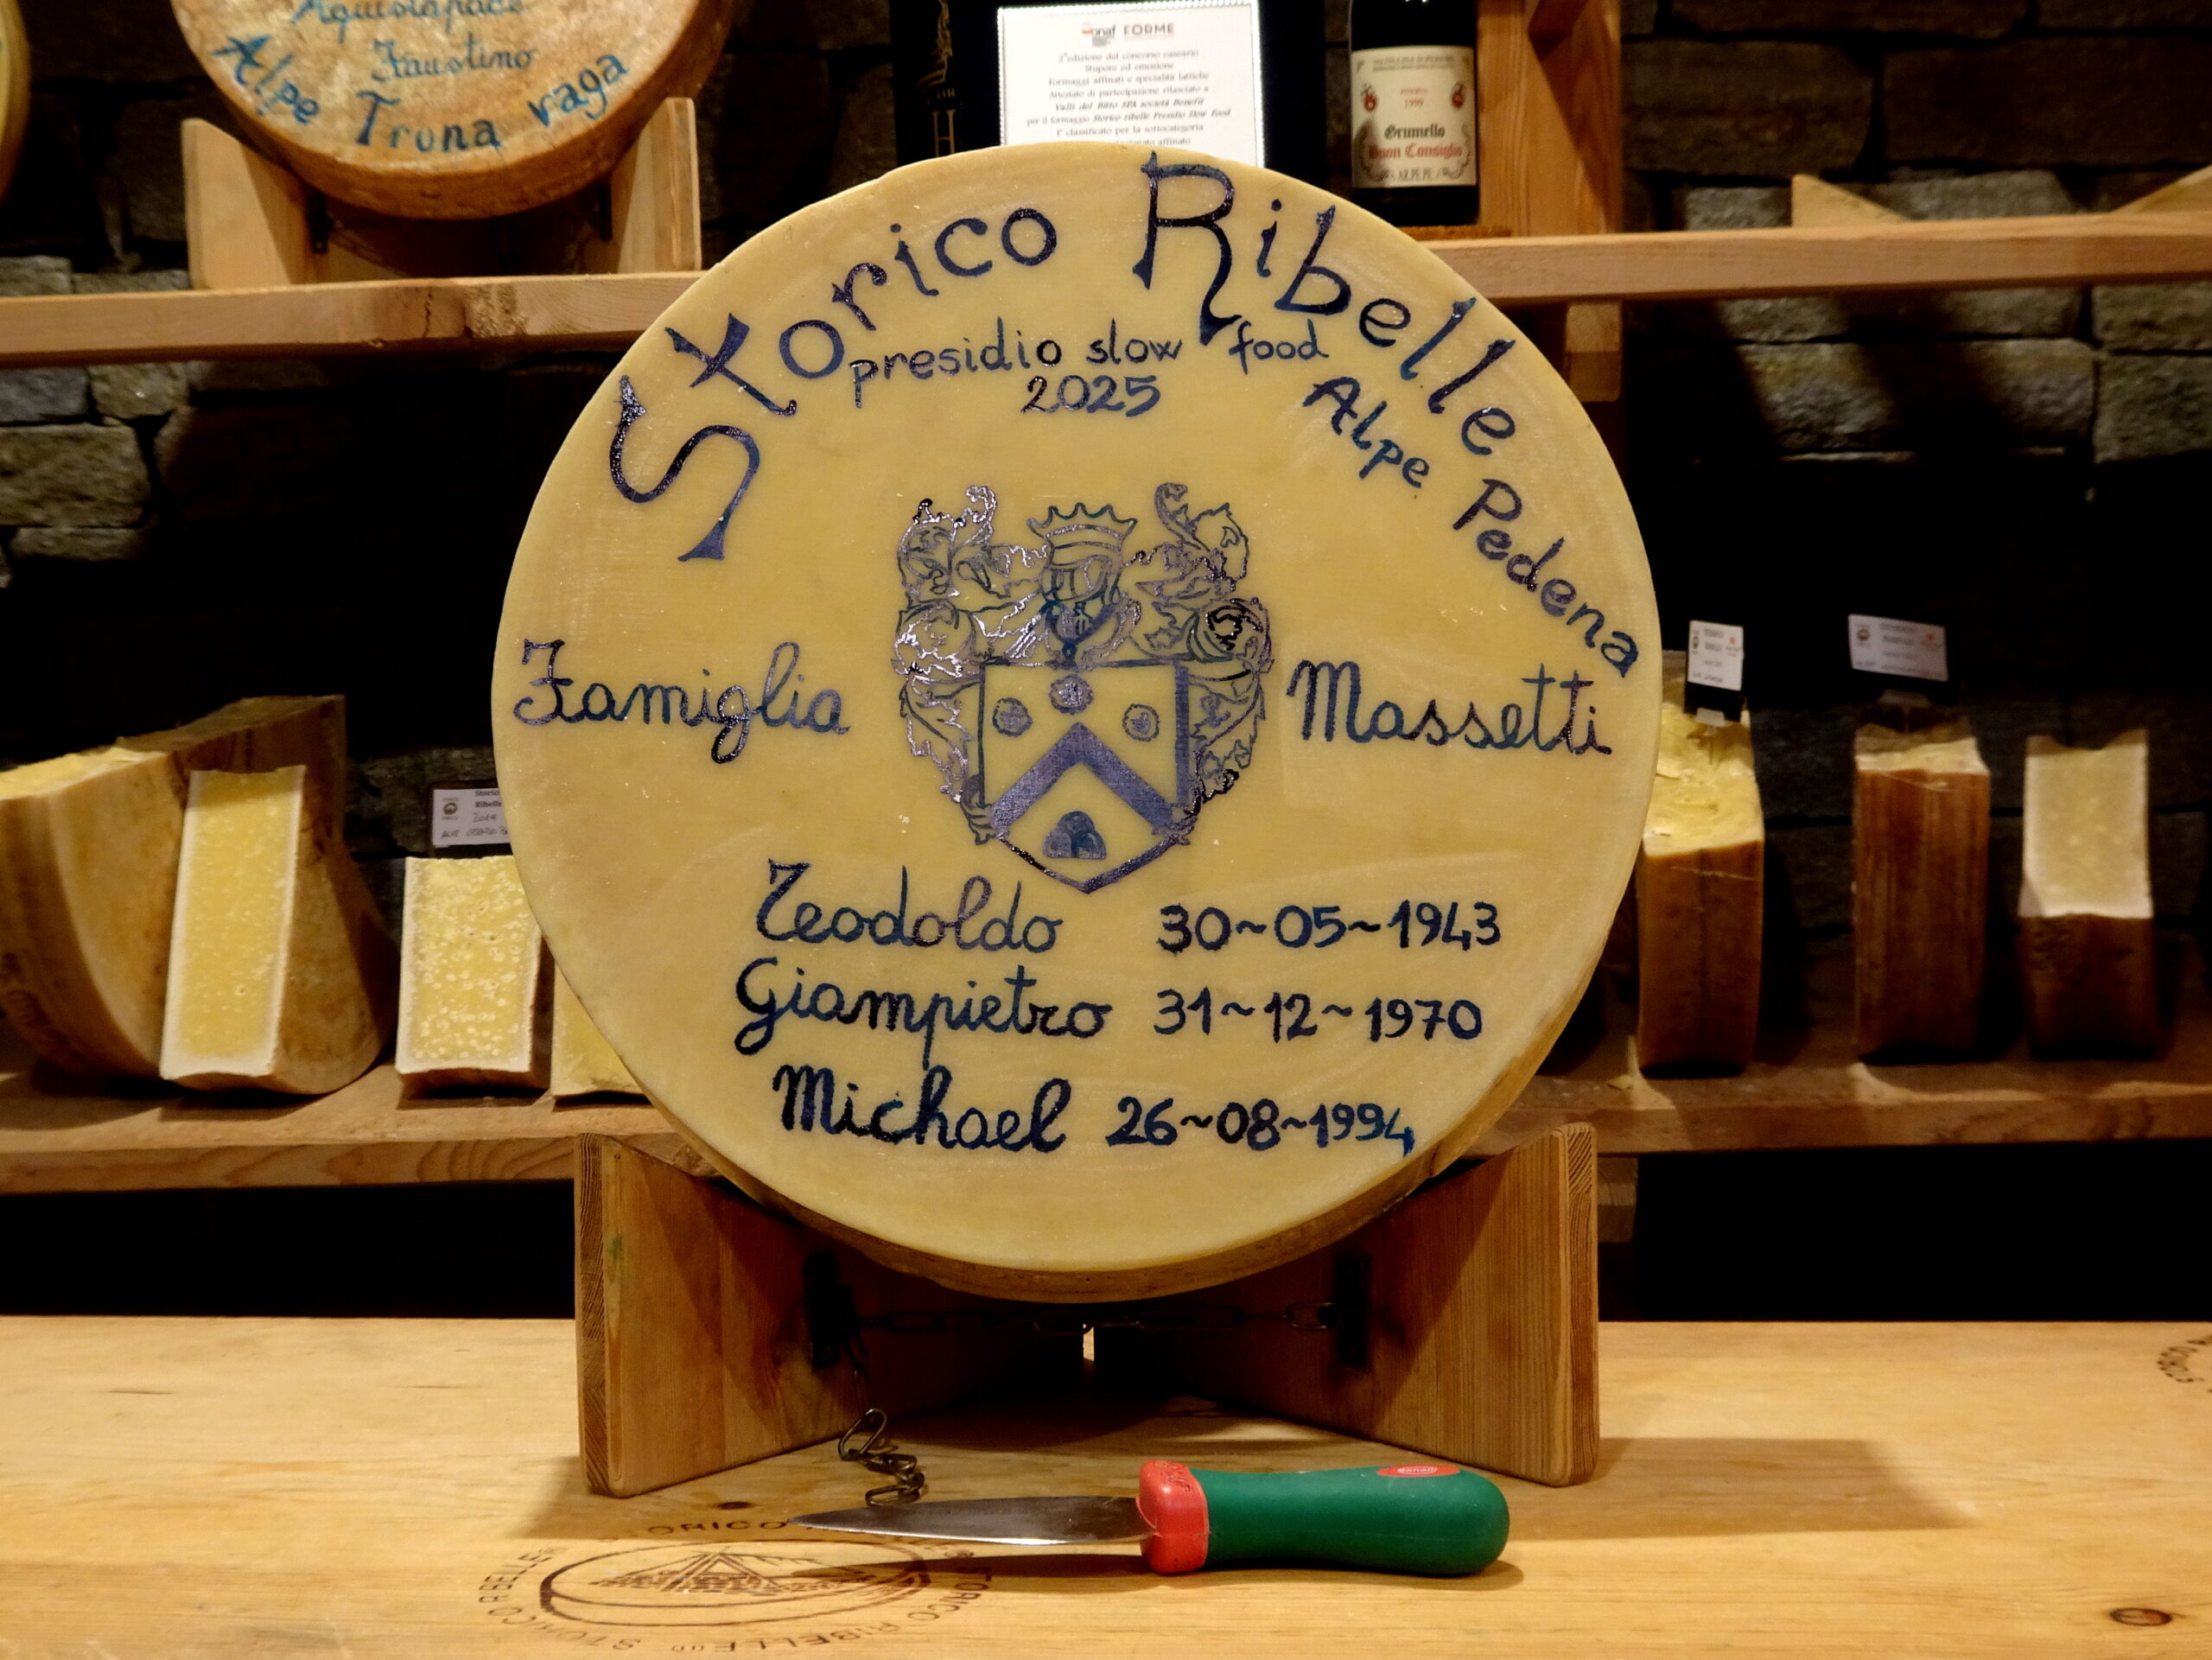 Faustino
Alpe Trona vaga
onaf FORME
2ª edizione del concorso caseario
Stupore ed emozione
Formaggi affinati e specialità lattiche
Attestato di partecipazione rilasciato a
Valli del Bitto SPA società Benefit
per il formaggio Storico ribelle Presidio Slow Food
1° classificato per la sottocategoria
affinato
RISERVA
1999
Grumello
Buon Consiglio
AR.PE.PE.
Storico Ribelle
presidio slow food
2025
Alpe Pedena
Famiglia Massetti
Teodoldo 30~05~1943
Giampietro 31~12~1970
Michael 26~08~1994
Storico
Ribelle
2014
STORICO RIBELLE
STORICO RIBELLE